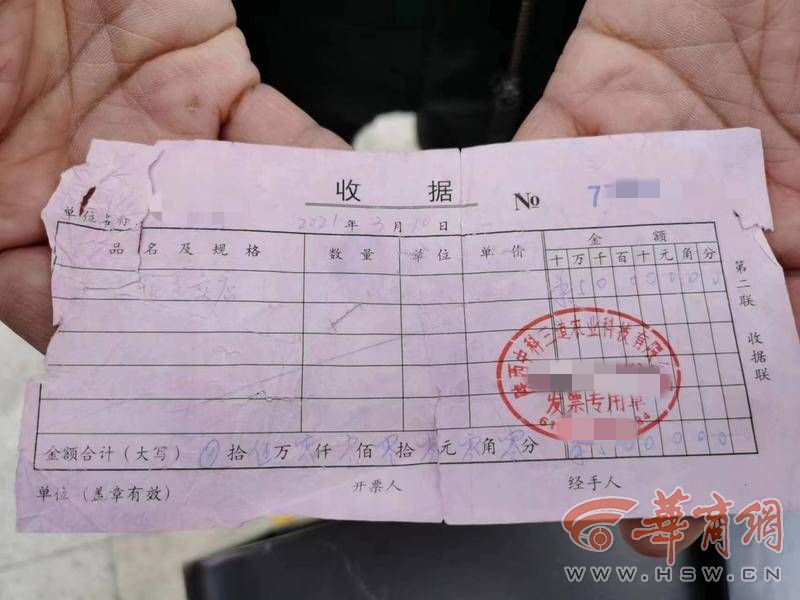 收 据
No 7
单位名称
2021年3月10日
品名及规格 数量 单位 单价 金额
十万千百十元角分
交店
¥5000000
第二联 收据联
陕西中科三连农业科技有限
发票专用章
61 84
金额合计（大写） ⊗拾伍万零仟零佰零拾零元零角零分 ¥5000000
单位（盖章有效） 开票人 经手人
華商網
WWW.HSW.CN